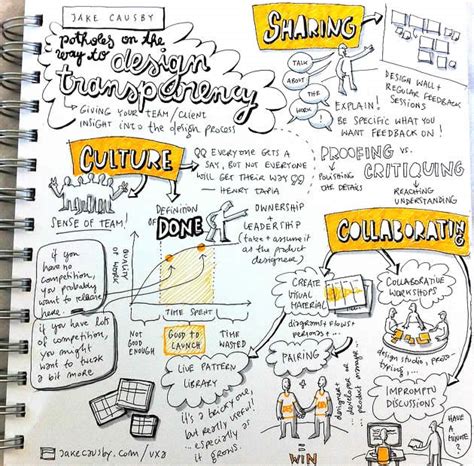 JAKE CAUSBY
potholes on the
way to design
transparency
GIVING YOUR TEAM/CLIENT
INSIGHT INTO THE DESIGN PROCESS
SHARING
TALK
ABOUT
THE
WORK!
DESIGN WALL +
REGULAR FEEDBACK
SESSIONS
EXPLAIN!
BE SPECIFIC WHAT YOU
WANT FEEDBACK ON!
CULTURE
EVERYONE GETS A
SAY, BUT NOT EVERYONE
WILL GET THEIR WAY
— HENRY TAPIA
PROOFING vs.
CRITIQUING
POLISHING
THE DETAILS
REACHING
UNDERSTANDING
SENSE OF TEAM!
DEFINITION
OF
DONE
OWNERSHIP
+
LEADERSHIP
(take + assume it
as the product
designer)
if you
have no
competition,
you probably
want to release
here.
if you have lots
of competition,
you might
want to tweak
a bit more
QUALITY
OF WORK
TIME SPENT
NOT
GOOD
ENOUGH
GOOD TO
LAUNCH
TIME
WASTED
LIVE PATTERN
LIBRARY
it's a bring one
but really useful!
... especially as
it grows.
COLLABORATING
CREATE
VISUAL
MATERIAL
diagrams + flows +
personas + ...
COLLABORATIVE
WORKSHOPS
design studio, proto-
typing ...
PAIRING
designer +
developer or
product manager...
= WIN
IMPROMPTU
DISCUSSIONS
HAVE
A
MINUTE?
jakecausby.com/ux8